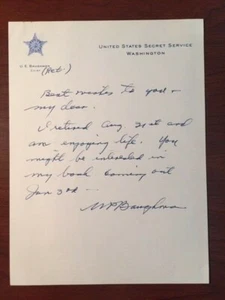 UNITED STATES SECRET SERVICE
WASHINGTON
U. E. BAUGHMAN
CHIEF
(Ret.)
Best wishes to you &
my dear.
I retired Aug 31st and
am enjoying life. You
might be interested in
my book coming out
Jan 3rd —
U E Baughman